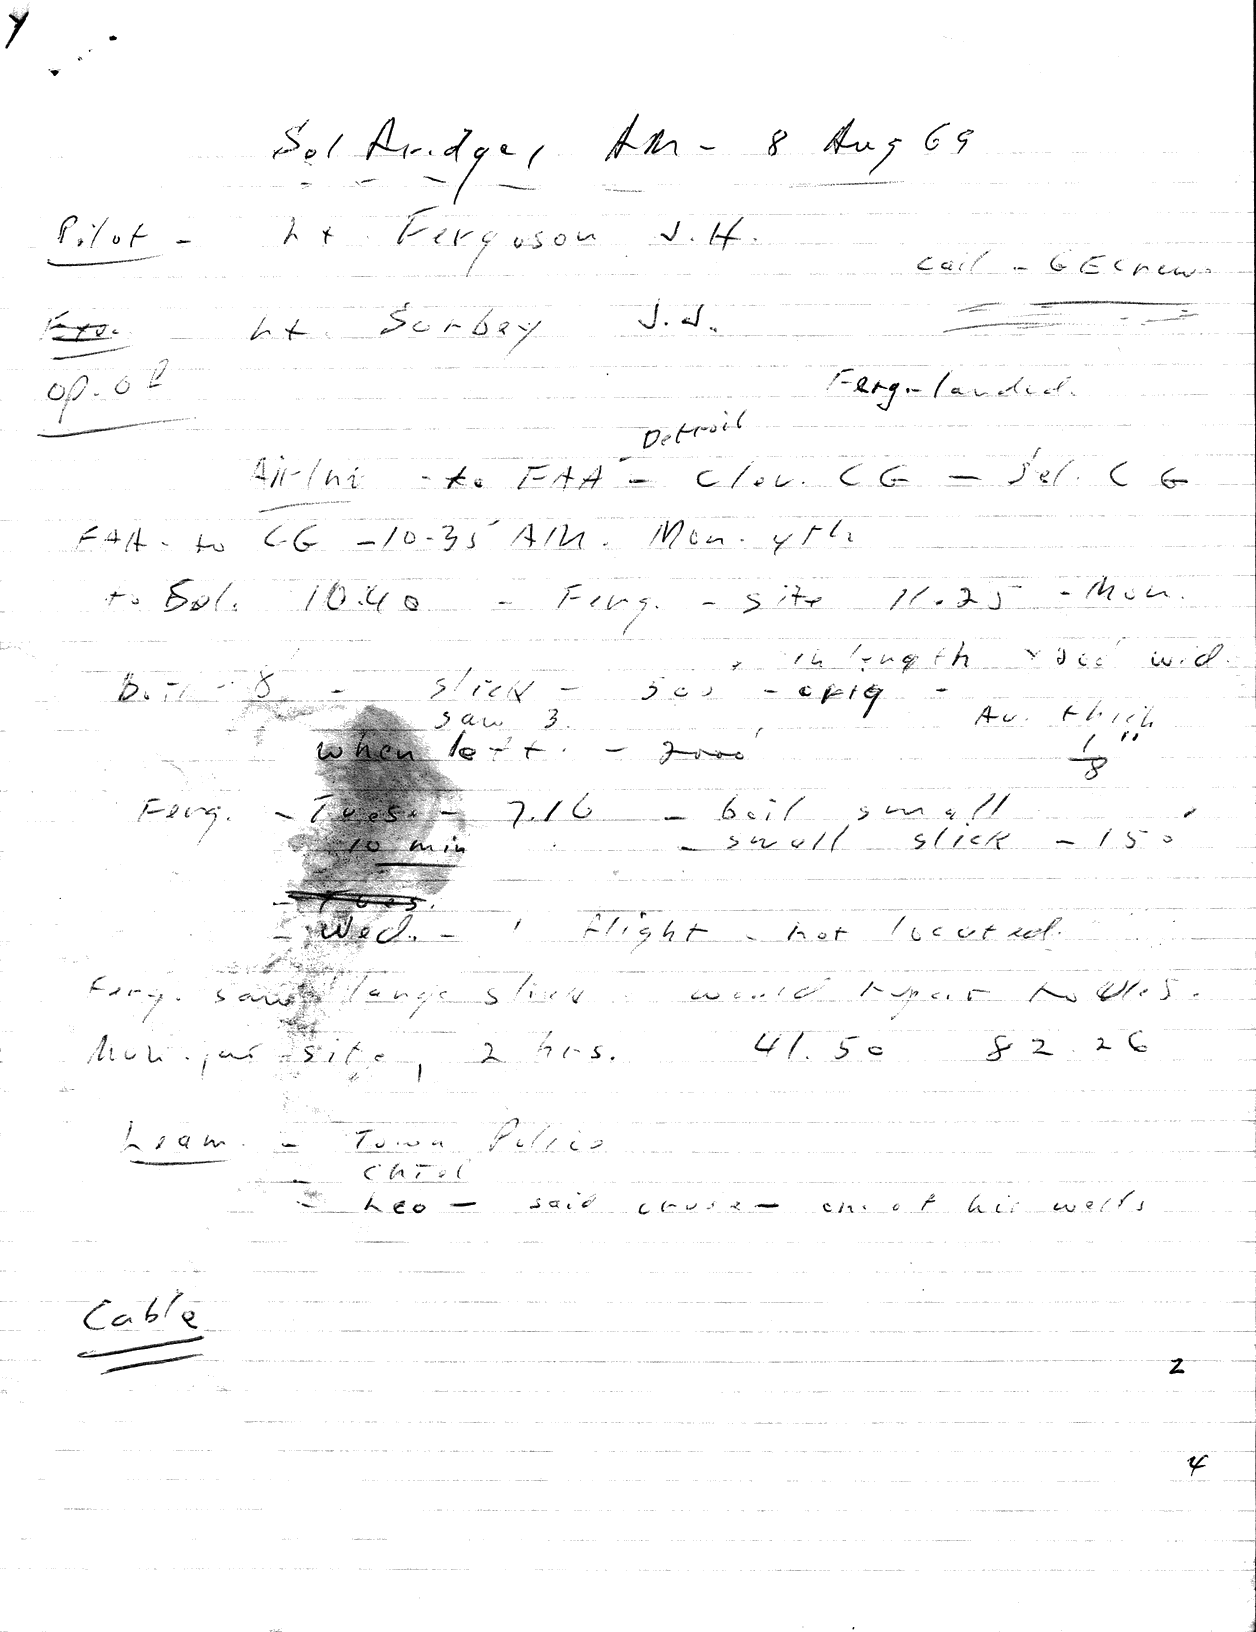 Selfridge, AM - 8 Aug 69
Pilot - Lt. Ferguson J.H.
call - GE crew.
Exo. Lt. Sorbey J.J.
Op. Of
Ferg. landed.
Detroit
Airline - to FAA - Clev. CG - Sel. CG
FAA - to CG - 10-35 AM. Mon. 4th
to Sel. 10.40 - Ferg. - site 11.25 - Mon.
in length wid.
Boil - 8 - slick - 500 - orig -
saw 3. Av. thick
when left. - 2000' 1/8"
Ferg. - Tues. - 7.16 - boil small
10 min - small slick - 150'
- Tues.
- Wed. - 1 flight - not located.
Ferg. saw large slick would report to
Mon. site, 2 hrs. 41.50 82.26
Leam. - Town Police
- Chief
- Leo - said cause - one of his wells
Cable
2
4